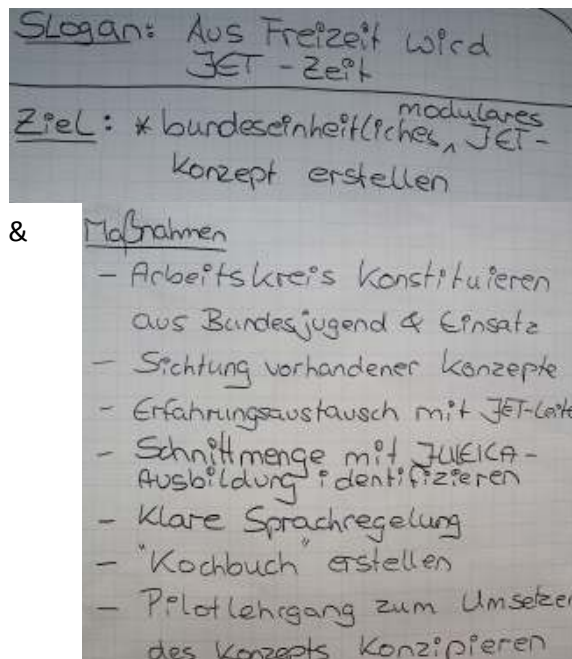 Slogan: Aus Freizeit wird
JET-Zeit
Ziel: * bundeseinheitliches, modulares JET-
Konzept erstellen
&
Maßnahmen
- Arbeitskreis konstituieren
aus Bundesjugend & Einsatz
- Sichtung vorhandener Konzepte
- Erfahrungsaustausch mit JET-Leite
- Schnittmenge mit JULEICA-
Ausbildung identifizieren
- Klare Sprachregelung
- "Kochbuch" erstellen
- Pilotlehrgang zum Umsetzen
des Konzepts konzipieren